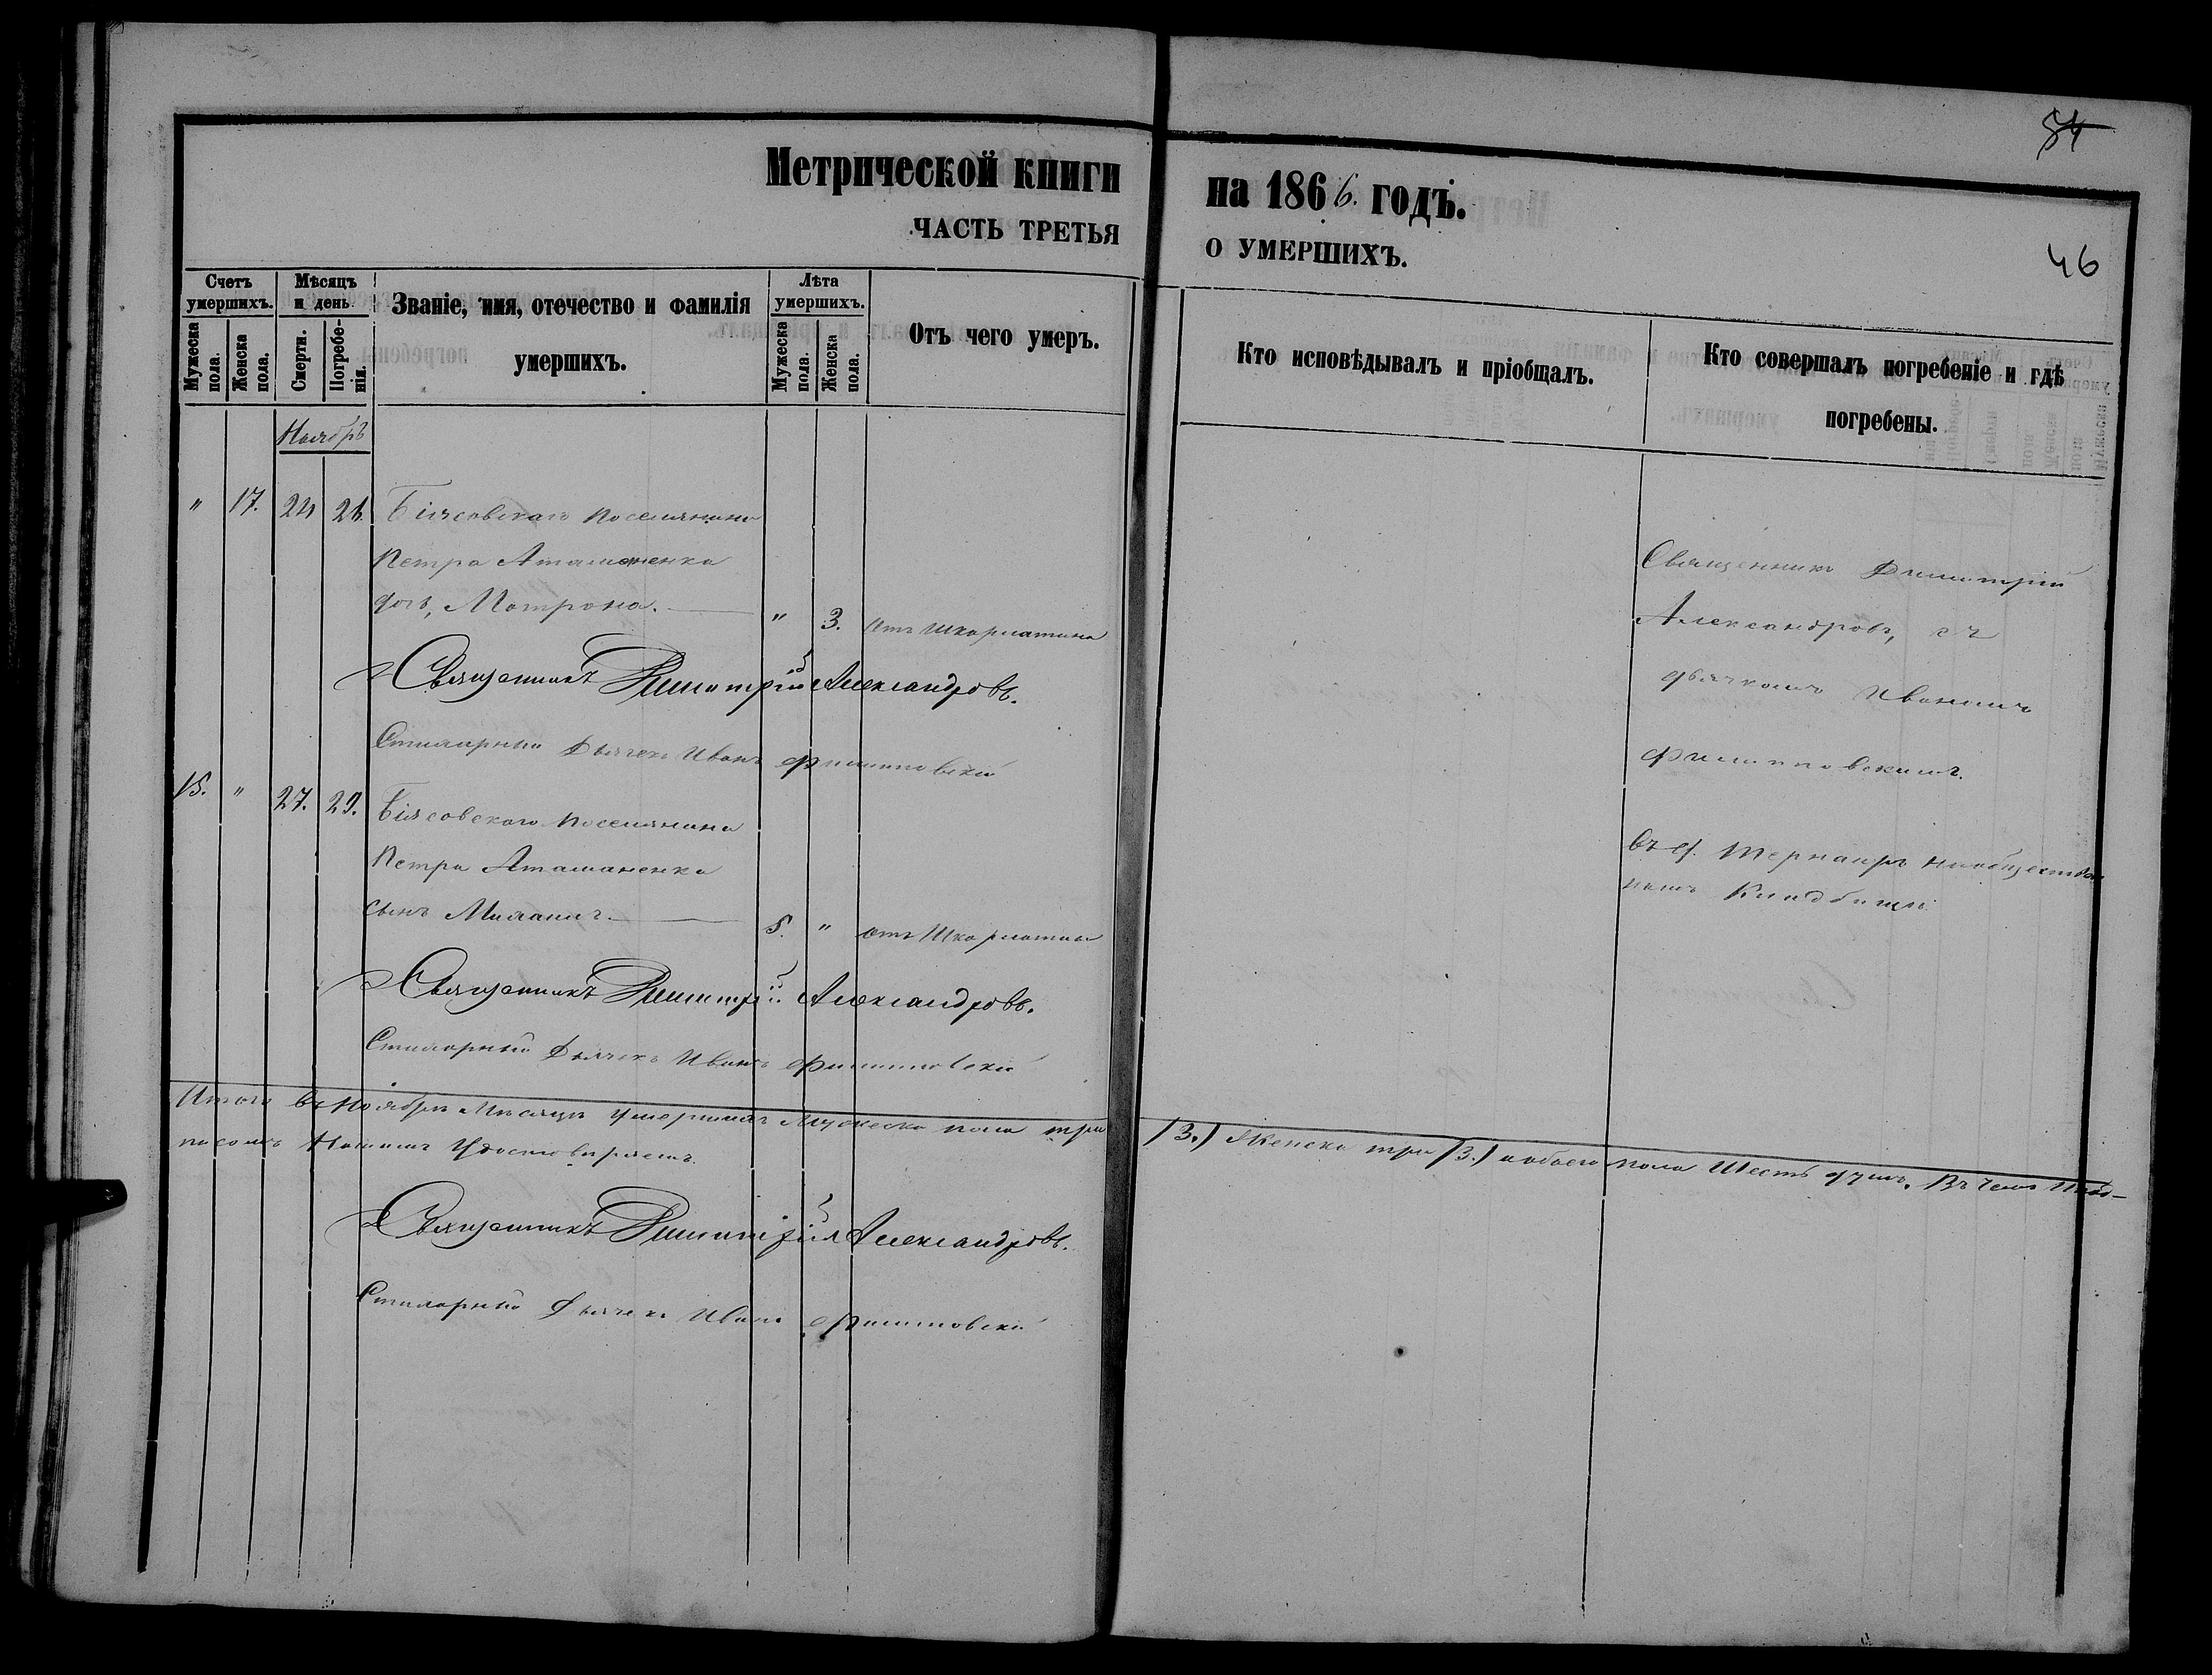 84
Метрической книги на 1866. годъ.
ЧАСТЬ ТРЕТЬЯ О УМЕРШИХЪ.
46
Счетъ умершихъ.
Мужеска пола.
Женска пола.
Мѣсяцъ и день
Смерти.
Погребенія.
Званіе, имя, отечество и фамилія
умершихъ.
Лѣта умершихъ.
Мужеска пола.
Женска пола.
Отъ чего умеръ.
Кто исповѣдывалъ и пріобщалъ.
Кто совершалъ погребеніе и гдѣ
погребены.
Ноябрь
" 17. 24 26. поселянина
Петра Атаманенка
дочь, Матрона. " 3. Отъ Шкарлатина
Священникъ Димитрій Александровъ.
Дьячекъ Иванъ Филиповскій
15. " 27. 29. поселянина
Петра Атаманенка
сынъ 5. " отъ Шкарлатины
Священникъ Димитрій Александровъ.
Дьячекъ Иванъ Филиповскій
Священникъ Димитрій
Александровъ, съ
дьячкомъ Иваномъ
Филиповскимъ.
въ на обществен
номъ Кладбищѣ.
Итого въ Ноябрѣ Мѣсяцѣ умершихъ Мужеска пола три /3./ Женска три /3./ а обоего пола Шесть душъ. Въ чемъ Под-
писомъ Нашимъ Удостовѣряемъ.
Священникъ Димитрій Александровъ.
Дьячекъ Иванъ Филиповскій